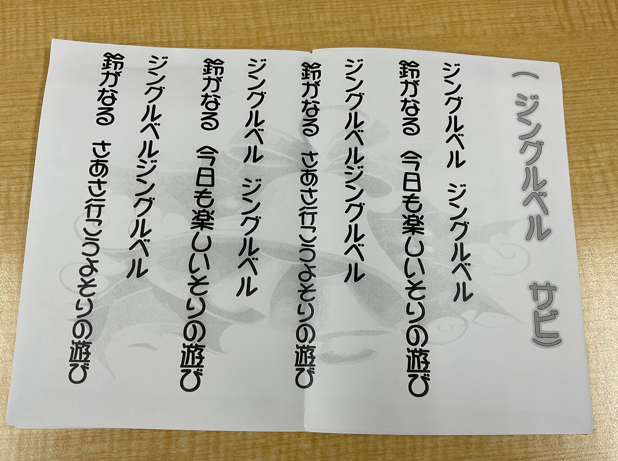 ( ジングルベル サビ)
ジングルベル ジングルベル
鈴がなる 今日も楽しいそりの遊び
ジングルベルジングルベル
鈴がなる さあさ行こうよそりの遊び
ジングルベル ジングルベル
鈴がなる 今日も楽しいそりの遊び
ジングルベルジングルベル
鈴がなる さあさ行こうよそりの遊び